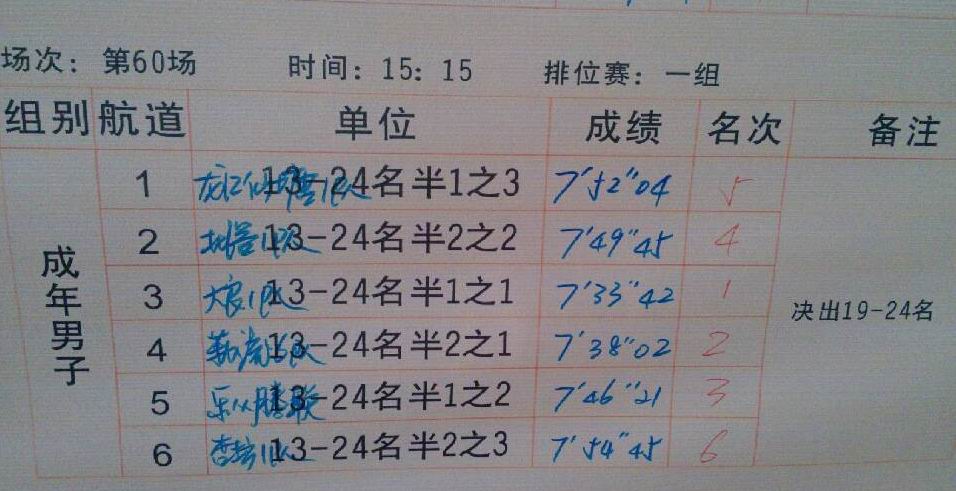 场次：第60场 时间：15：15 排位赛：一组
组别 航道 单位 成绩 名次 备注
成年男子
1 13-24名半1之3 7'52"04 5
2 13-24名半2之2 7'49"45 4
3 13-24名半1之1 7'33"42 1
4 13-24名半2之1 7'38"02 2
5 13-24名半1之2 7'46"21 3
6 13-24名半2之3 7'54"45 6
决出19-24名